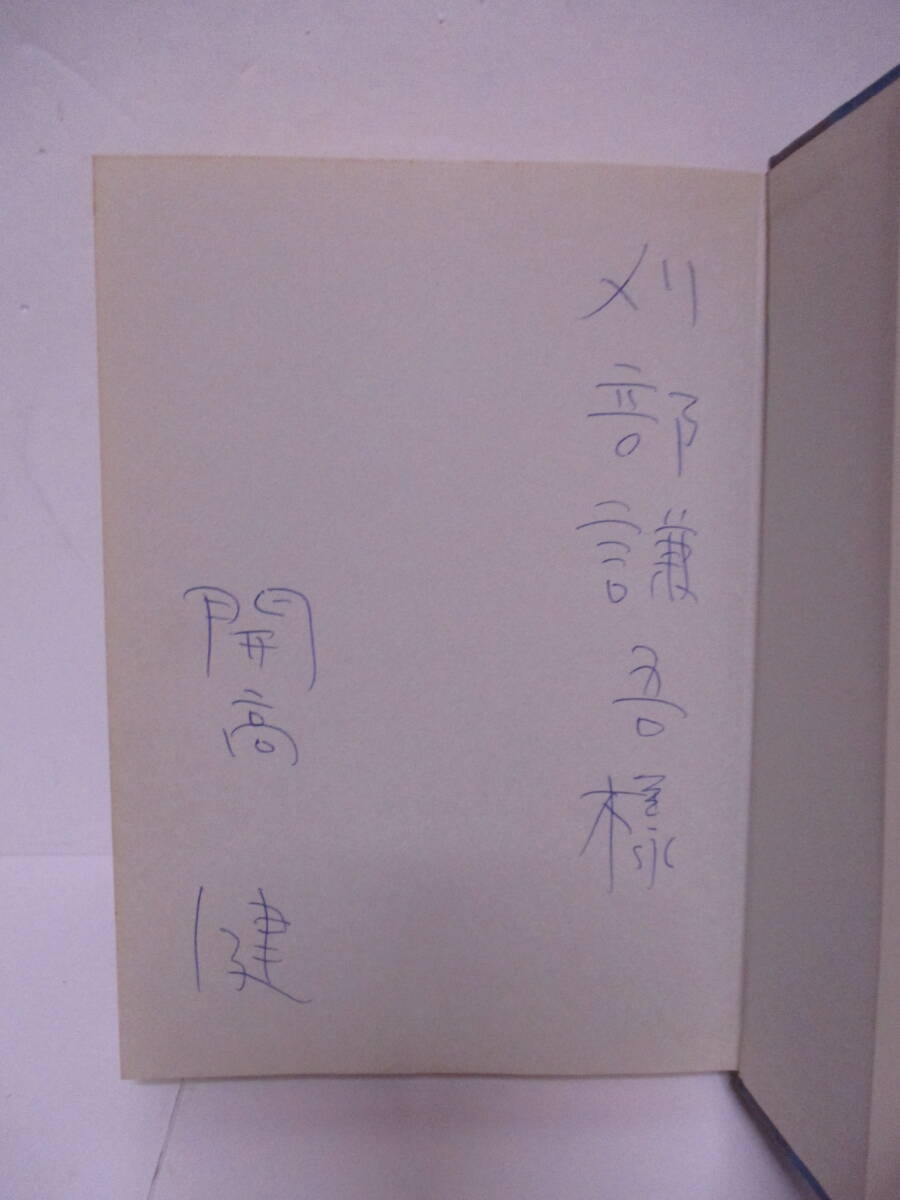 刈部謙吾様
開高健